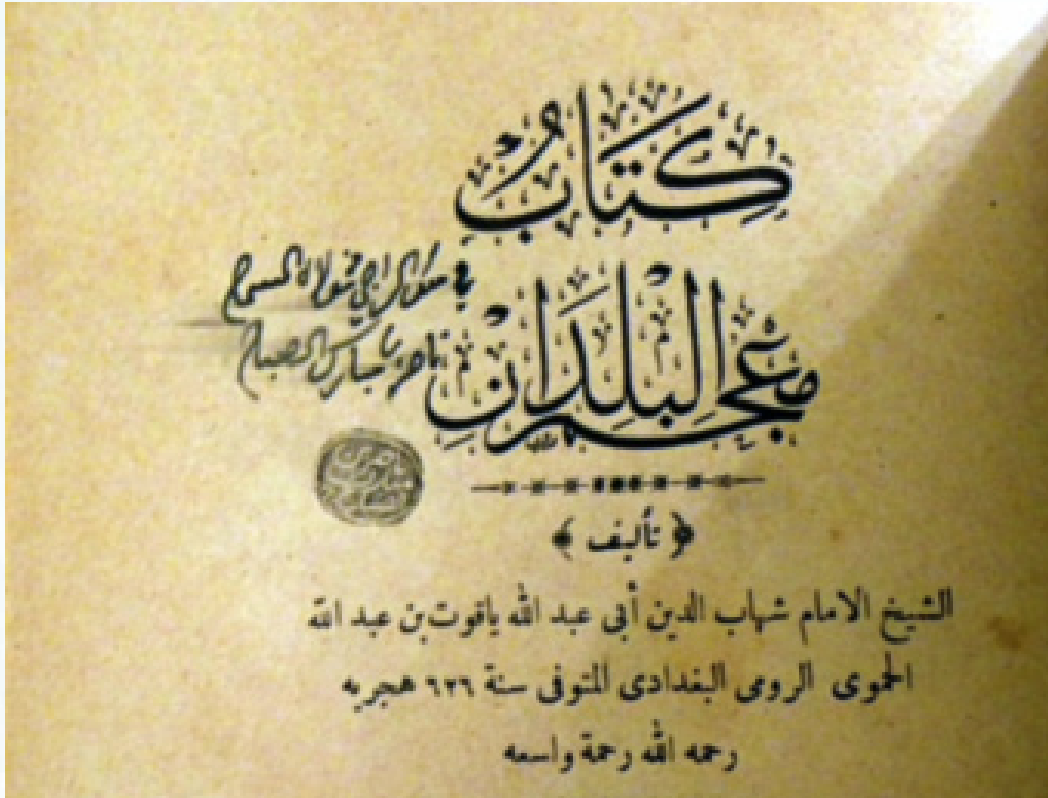 كِتَابُ
مُعْجَمُ البُلْدَانْ
ناصر مبارك الصباح
﴿ تأليف ﴾
الشيخ الامام شهاب الدين أبي عبد الله ياقوت بن عبد الله
الحموى الرومى البغدادى المتوفى سنة ٦٢٦ هجريه
رحمه الله رحمة واسعه